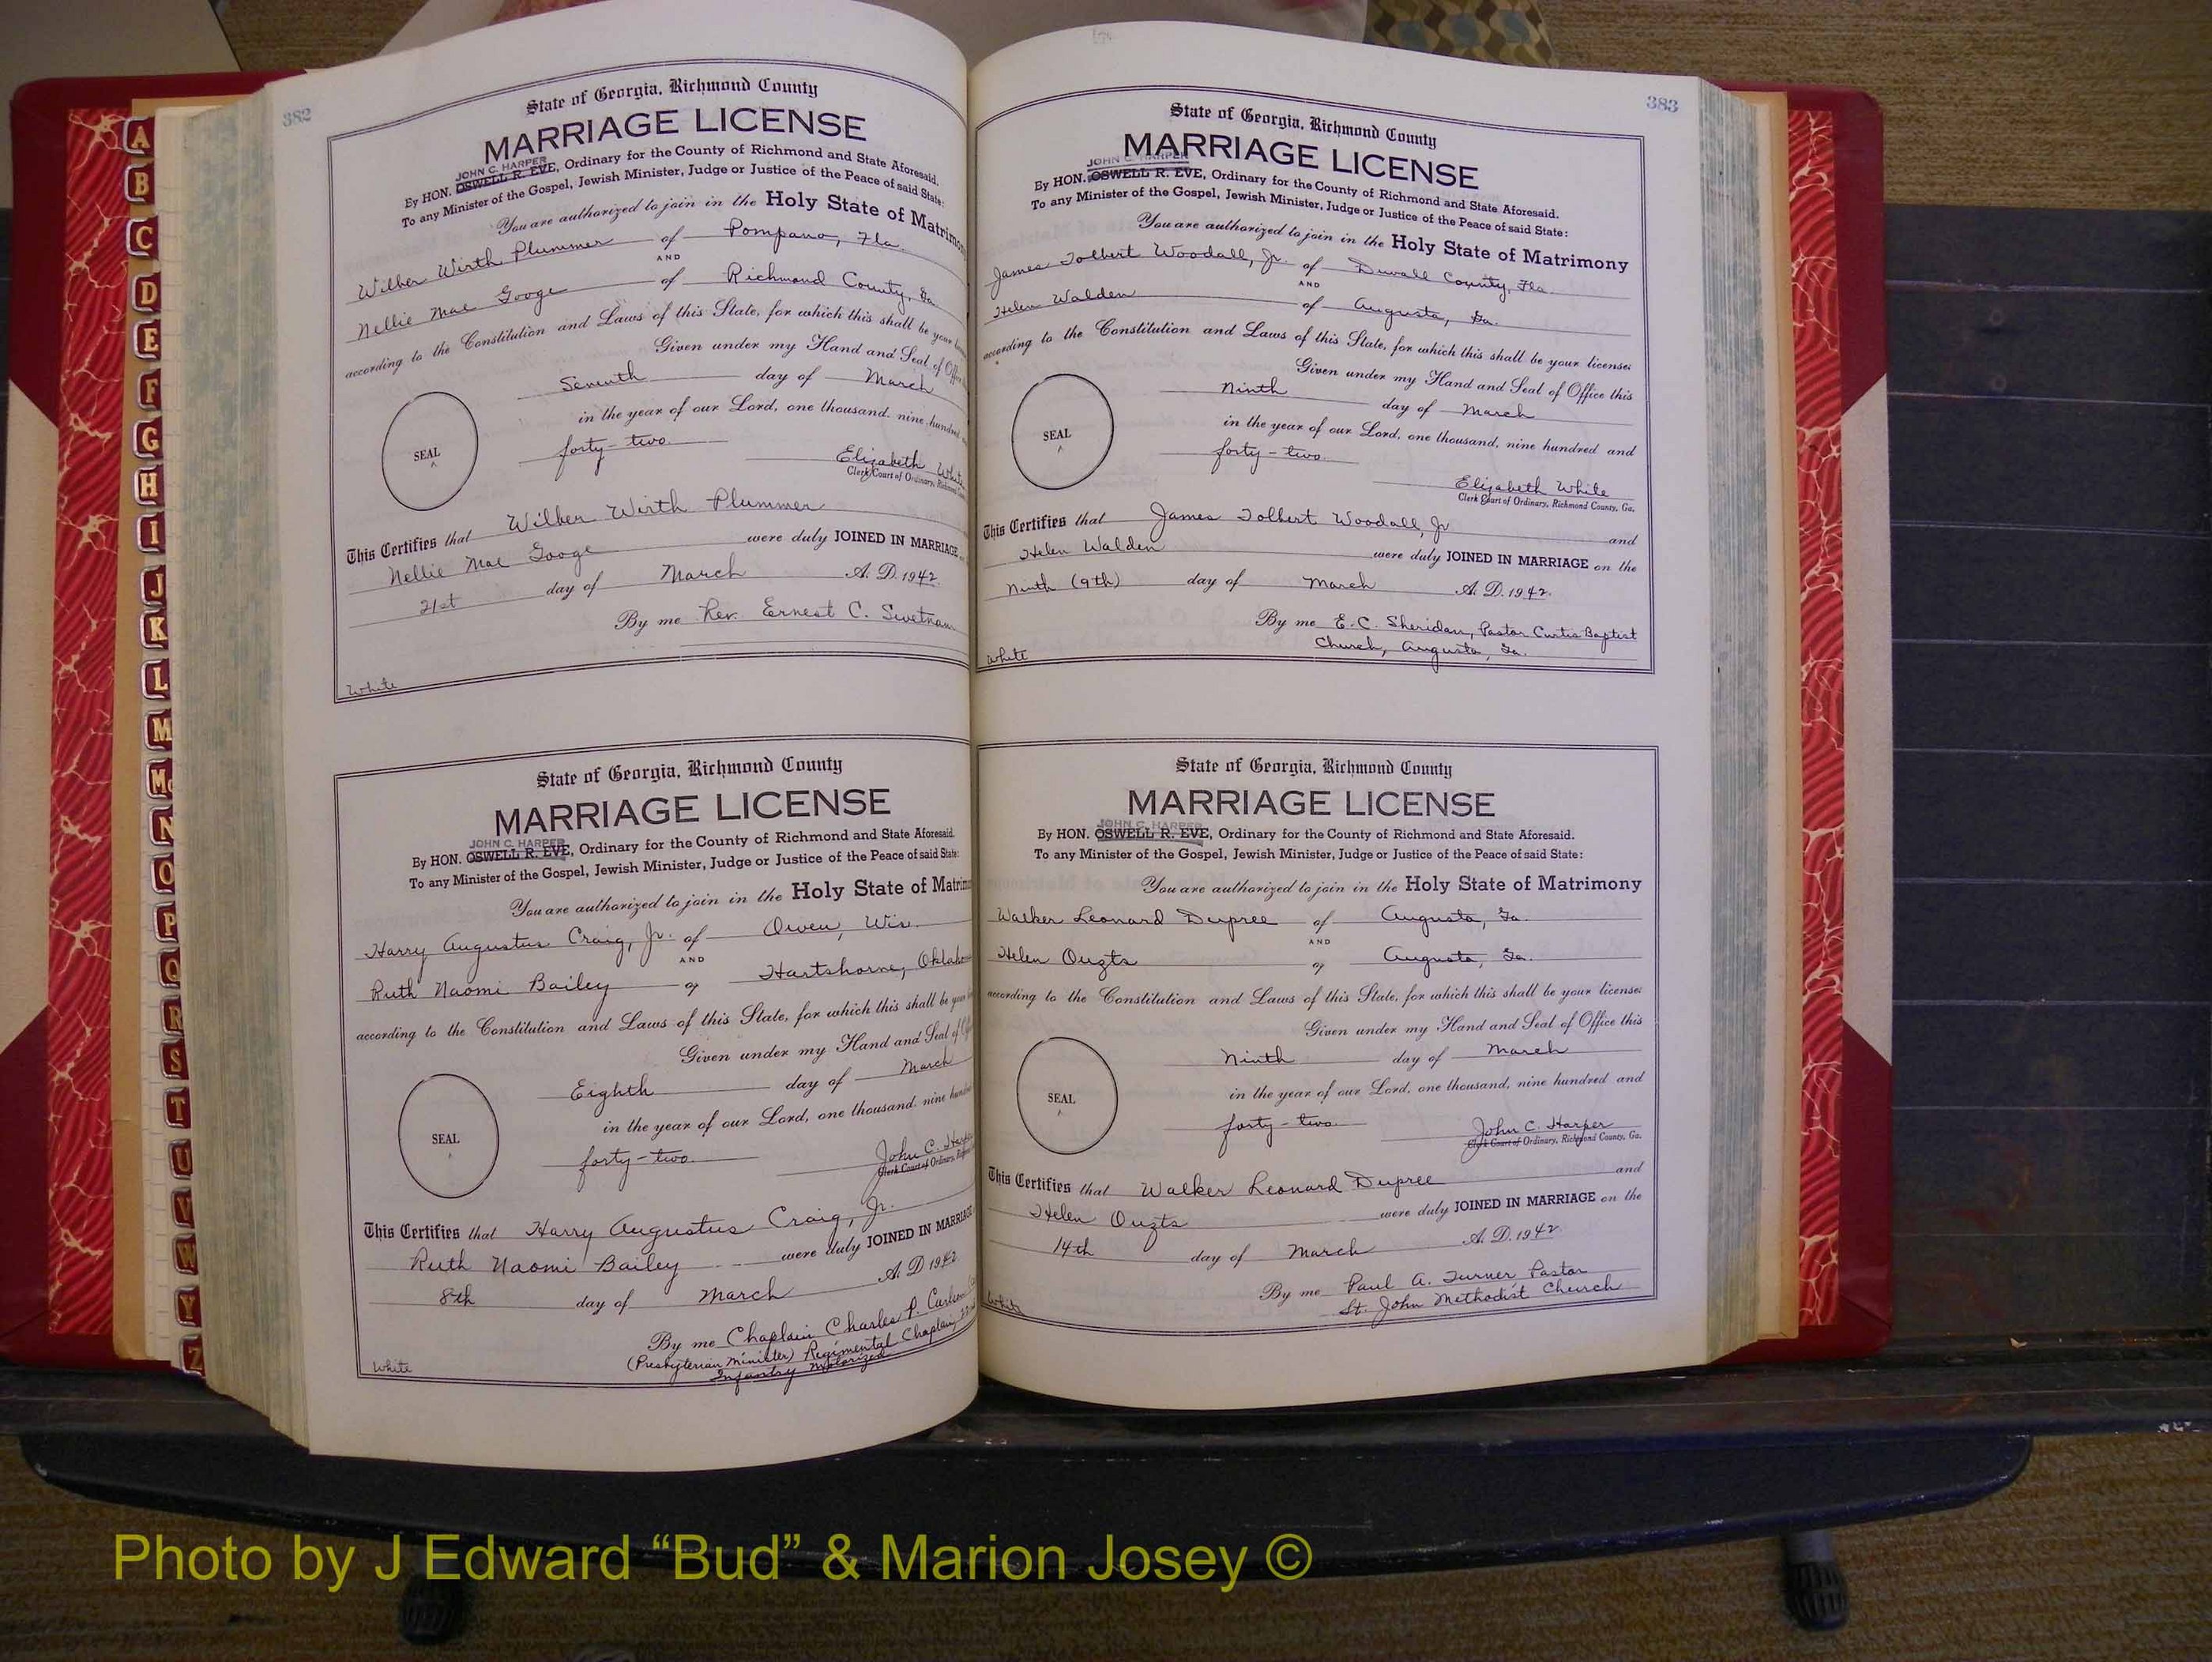 A
B
C
D
E
F
G
H
I
J
K
L
M
Mc
N
O
P
Q
R
S
T
U
V
W
Y
Z
382
State of Georgia, Richmond County
MARRIAGE LICENSE
JOHN C. HARPER
By HON. OSWELL R. EVE, Ordinary for the County of Richmond and State Aforesaid.
To any Minister of the Gospel, Jewish Minister, Judge or Justice of the Peace of said State:
You are authorized to join in the Holy State of Matrimony
Wilber Wirth Plummer of Pompano, Fla.
AND
Nellie Mae Googe of Richmond County, Ga.
according to the Constitution and Laws of this State, for which this shall be your
Given under my Hand and Seal of Office
Seventh day of March
in the year of our Lord, one thousand, nine hundred
SEAL
forty-two
Elizabeth White
Clerk Court of Ordinary, Richmond
This Certifies that Wilber Wirth Plummer
Nellie Mae Googe were duly JOINED IN MARRIAGE
21st day of March A. D. 1942.
By me Rev. Ernest C. Swetnam
White
State of Georgia, Richmond County
MARRIAGE LICENSE
JOHN C. HARPER
By HON. OSWELL R. EVE, Ordinary for the County of Richmond and State Aforesaid.
To any Minister of the Gospel, Jewish Minister, Judge or Justice of the Peace of said State:
You are authorized to join in the Holy State of Matrim
Harry Augustus Craig, Jr. of Owen, Wis.
AND
Ruth Naomi Bailey of Hartshorne, Oklahoma
according to the Constitution and Laws of this State, for which this shall be your
Given under my Hand and Seal of
Eighth day of March
in the year of our Lord, one thousand, nine hundred
SEAL
forty-two
John C. Harper
Clerk Court of Ordinary,
This Certifies that Harry Augustus Craig, Jr.
Ruth Naomi Bailey were duly JOINED IN MARRIAGE
8th day of March A. D. 1942
By me Chaplain Charles P. Carlson
(Presbyterian Minister) Regimental Chaplain, 22nd
Infantry Motorized
White
383
State of Georgia, Richmond County
MARRIAGE LICENSE
JOHN C. HARPER
By HON. OSWELL R. EVE, Ordinary for the County of Richmond and State Aforesaid.
To any Minister of the Gospel, Jewish Minister, Judge or Justice of the Peace of said State:
You are authorized to join in the Holy State of Matrimony
James Tolbert Woodall, Jr. of Duvall County, Fla.
AND
Helen Walden of Augusta, Ga.
according to the Constitution and Laws of this State, for which this shall be your license:
Given under my Hand and Seal of Office this
Ninth day of March
in the year of our Lord, one thousand, nine hundred and
SEAL
forty-two
Elizabeth White
Clerk Court of Ordinary, Richmond County, Ga.
This Certifies that James Tolbert Woodall, Jr and
Helen Walden were duly JOINED IN MARRIAGE on the
Ninth (9th) day of March A. D. 1942.
By me E. C. Sheridan, Pastor Curtis Baptist
Church, Augusta, Ga.
White
State of Georgia, Richmond County
MARRIAGE LICENSE
JOHN C. HARPER
By HON. OSWELL R. EVE, Ordinary for the County of Richmond and State Aforesaid.
To any Minister of the Gospel, Jewish Minister, Judge or Justice of the Peace of said State:
You are authorized to join in the Holy State of Matrimony
Walker Leonard Dupree of Augusta, Ga.
AND
Helen Ouzts of Augusta, Ga.
according to the Constitution and Laws of this State, for which this shall be your license:
Given under my Hand and Seal of Office this
Ninth day of March
in the year of our Lord, one thousand, nine hundred and
SEAL
forty-two
John C. Harper
Clerk Court of Ordinary, Richmond County, Ga.
This Certifies that Walker Leonard Dupree and
Helen Ouzts were duly JOINED IN MARRIAGE on the
14th day of March A. D. 1942
By me Paul A. Turner Pastor
St. John Methodist Church
White
Photo by J Edward “Bud” & Marion Josey ©